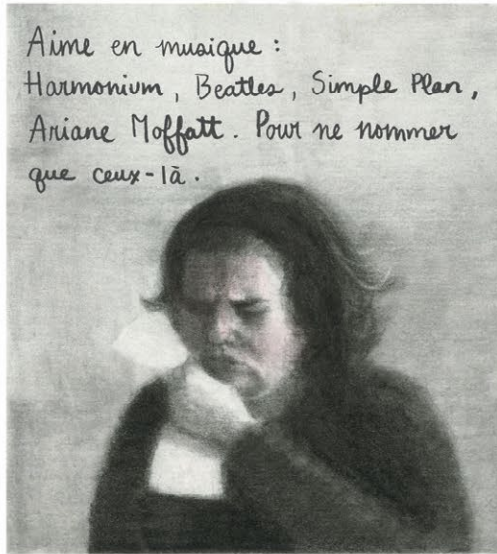 Aime en musique :
Harmonium, Beatles, Simple Plan,
Ariane Moffatt. Pour ne nommer
que ceux-là.